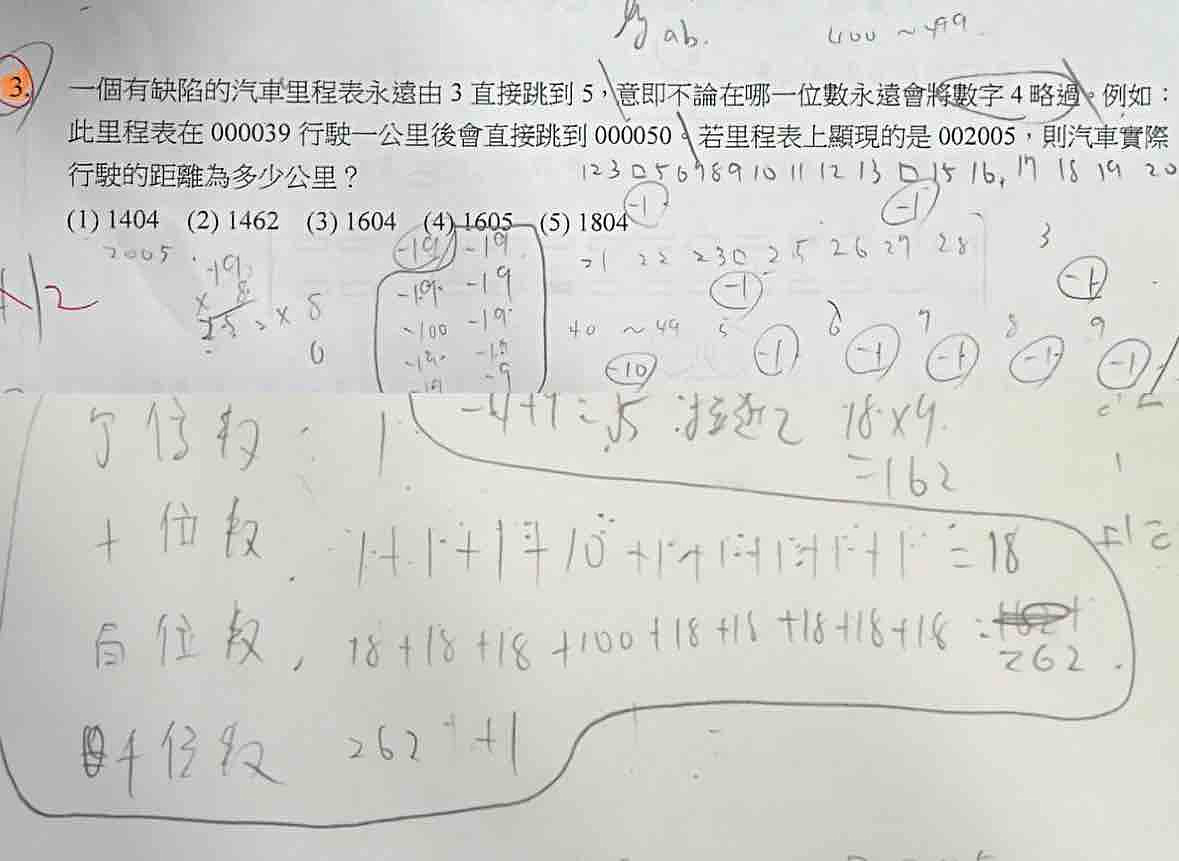 ab. 400 ~ 499
3. 一個有缺陷的汽車里程表永遠由 3 直接跳到 5,意即不論在哪一位數永遠會將數字 4 略過。例如:
此里程表在 000039 行駛一公里後會直接跳到 000050。若里程表上顯現的是 002005,則汽車實際
行駛的距離為多少公里?
1 2 3 □ 5 6 7 8 9 10 11 12 13 □ 15 16, 17 18 19 20
(1) 1404 (2) 1462 (3) 1604 (4) 1605 (5) 1804
-1 -1
2005 -19 -19 21 22 23 □ 25 26 27 28 3
-19 -19 -1 -1
-100 -19 40 ~ 49 5 6 7 8 9
-10 -1 -1 -1 -1 -1
18×9
=162
十位數 1+1+1+10+1+1+1+1+1=18
百位數, 18+18+18+100+18+18+18+18+18=
262
千位數 262 +1